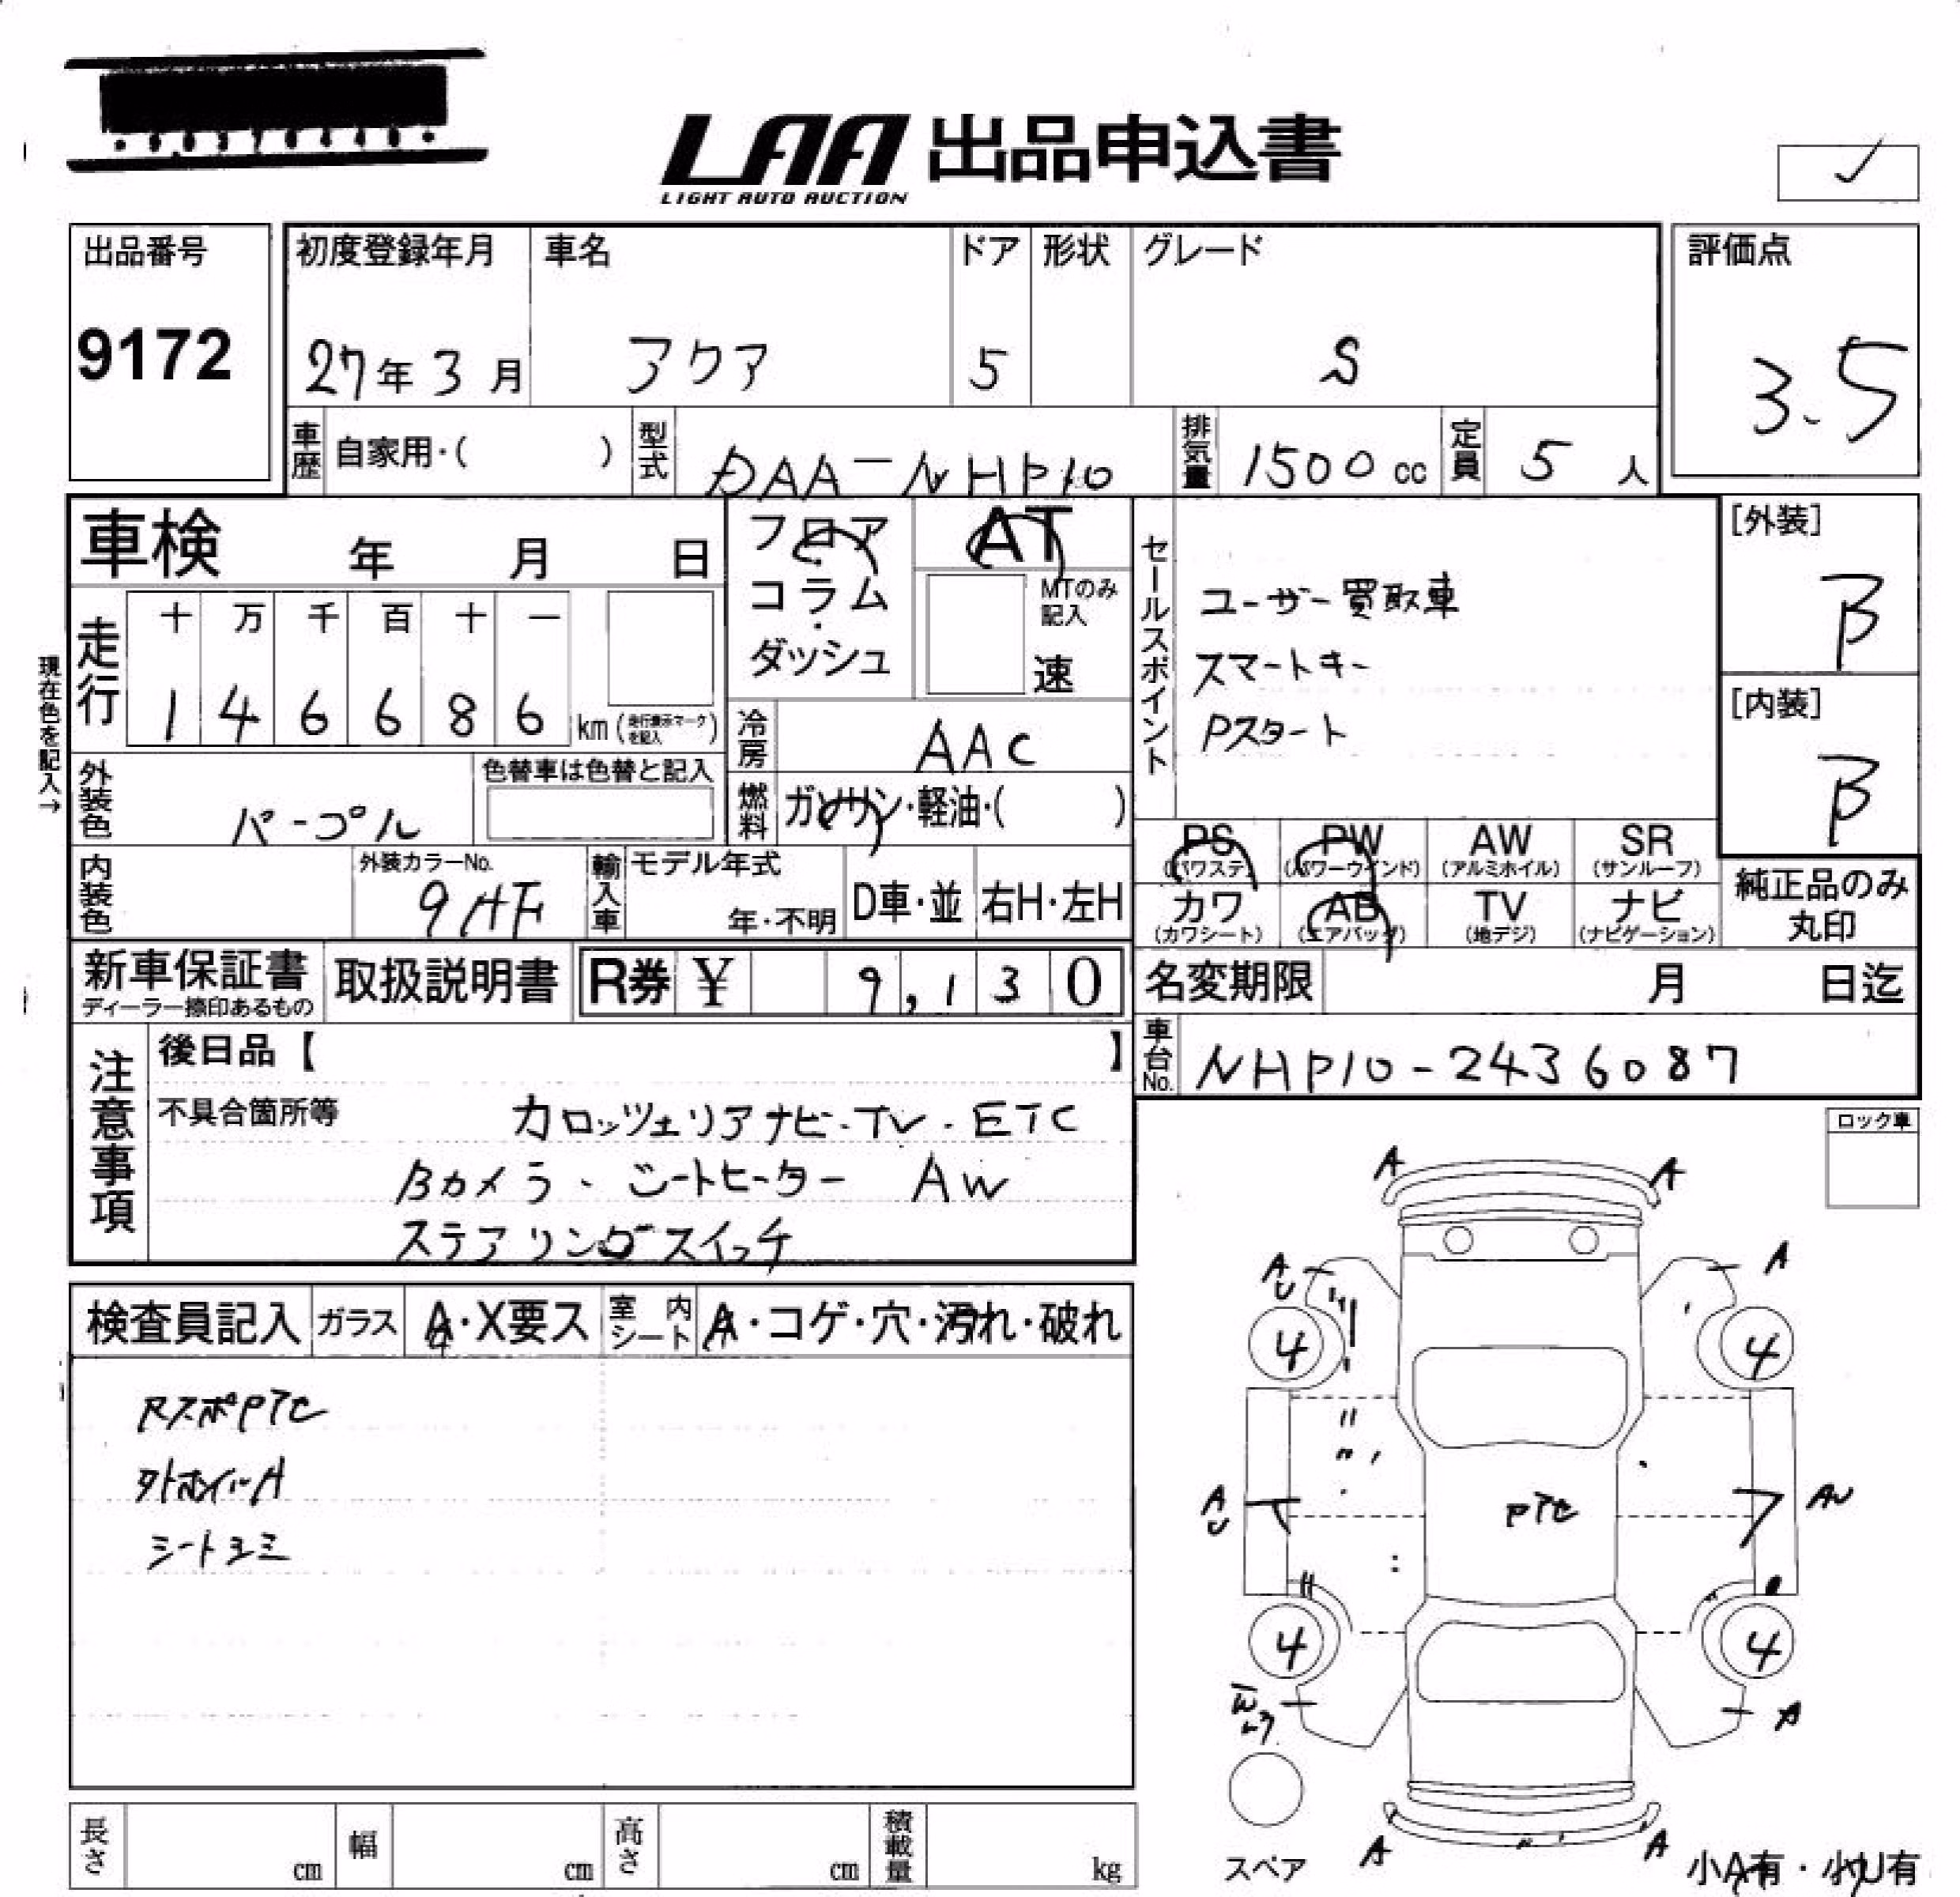 LAA 出品申込書
LIGHT AUTO AUCTION
✓
出品番号
9172
初度登録年月 車名 ドア 形状 グレード
27年3月 アクア 5 S
評価点
3.5
車歴 自家用・( ) 型式 DAA-NHP10 排気量 1500cc 定員 5人
車検 年 月 日
フロア・コラム・ダッシュ
AT
MTのみ記入
速
セールスポイント
ユーザー買取車
スマートキー
Pスタート
[外装]
B
[内装]
B
現在色を記入→
走行 十 万 千 百 十 一
1 4 6 6 8 6 km(走行表示マークを記入)
冷房 AAC
外装色 パープル
色替車は色替と記入
燃料 ガソリン・軽油・( )
PS PW AW SR
(パワステ) (パワーウインド) (アルミホイル) (サンルーフ)
カワ AB TV ナビ
(カワシート) (エアバッグ) (地デジ) (ナビゲーション)
純正品のみ
丸印
内装色
外装カラーNo.
9AF
輸入車 モデル年式
年・不明
D車・並 右H・左H
新車保証書
ディーラー捺印あるもの
取扱説明書
R券 ¥ 9,130
名変期限 月 日迄
車台No. NHP10-2436087
注意事項
後日品【 】
不具合箇所等 カロッツェリアナビ・TV・ETC
Bカメラ・シートヒーター AW
ステアリングスイッチ
ロック車
検査員記入 ガラス A・X要ス 室内シート A・コゲ・穴・汚れ・破れ
RスポPTC
外ホイルA
シートヨミ
A A
AU A
4 4
AU PTC AU
4 4
A
スペア
A A
小A有・小U有
長さ cm 幅 cm 高さ cm 積載量 kg